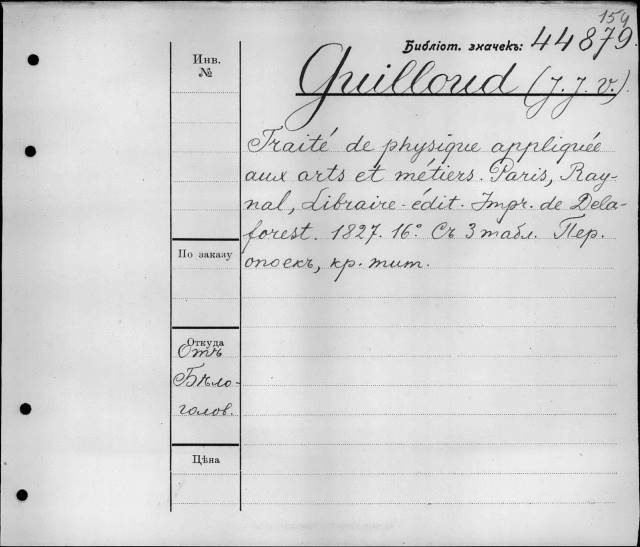 154
Библіот. значекъ: 44879.
Инв.
№
Guilloud (J. J. V.)
Traité de physique appliquée
aux arts et métiers. Paris, Ray-
nal, Libraire-édit. Impr. de Dela-
forest. 1827. 16º. Съ 3 табл. Пер.
опоекъ, кр. тит.
По заказу
Откуда
Отъ
Бѣло-
голов.
Цѣна